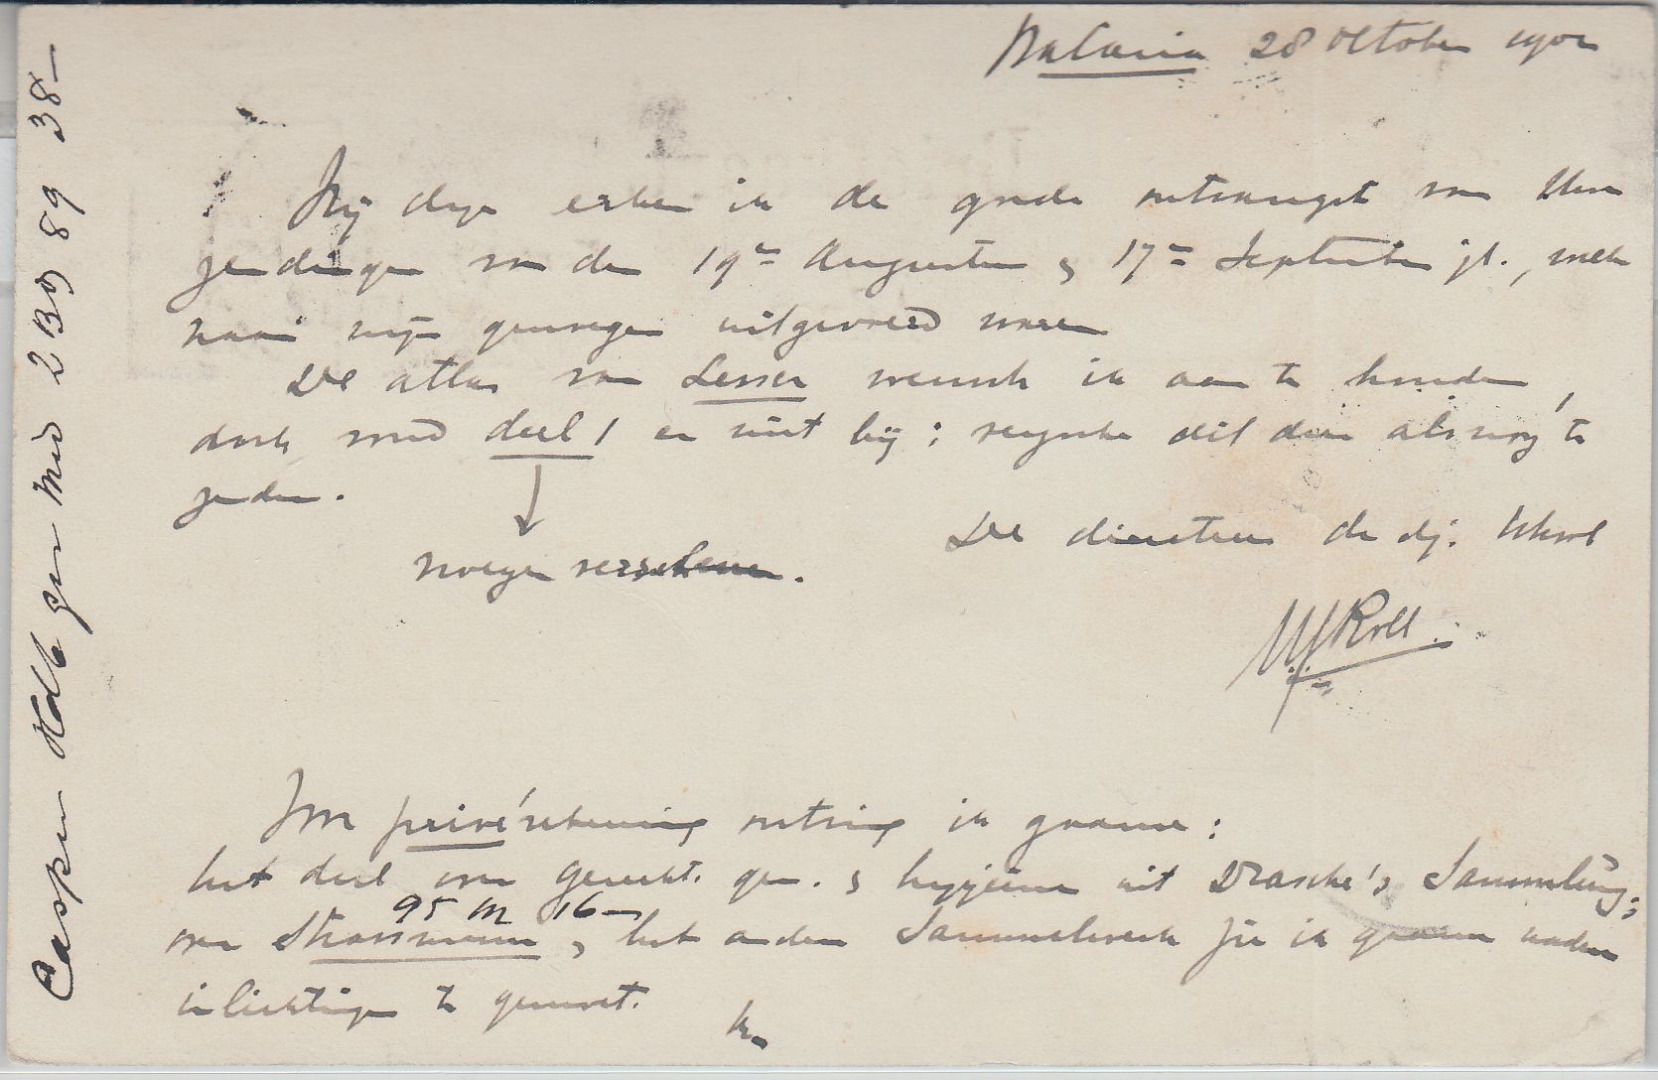 Batavia 28 October 1902
Mij dezer erken ik de goede ontvangst van Uwe
zendingen van den 19en Augustus & 17en September jl., welke
naar mijn genoegen uitgevoerd waren
De atlas van Lesser wensch ik aan te houden,
doch was deel 1 er niet bij; verzoeke dit dan alsnog te
zenden.
nooit verschenen.
De directeur de dj. School
Roll
Voor privé rekening ontving ik gaarne:
het deel over gerecht. gen. & hygiene uit Drasche's Sammlung;
95 M 16—
over Strassmann, het andere Sammelwerk zie ik gaarne nadere
inlichtingen te gemoet.
Casper Hdb ger Med 2 BD 89 38—